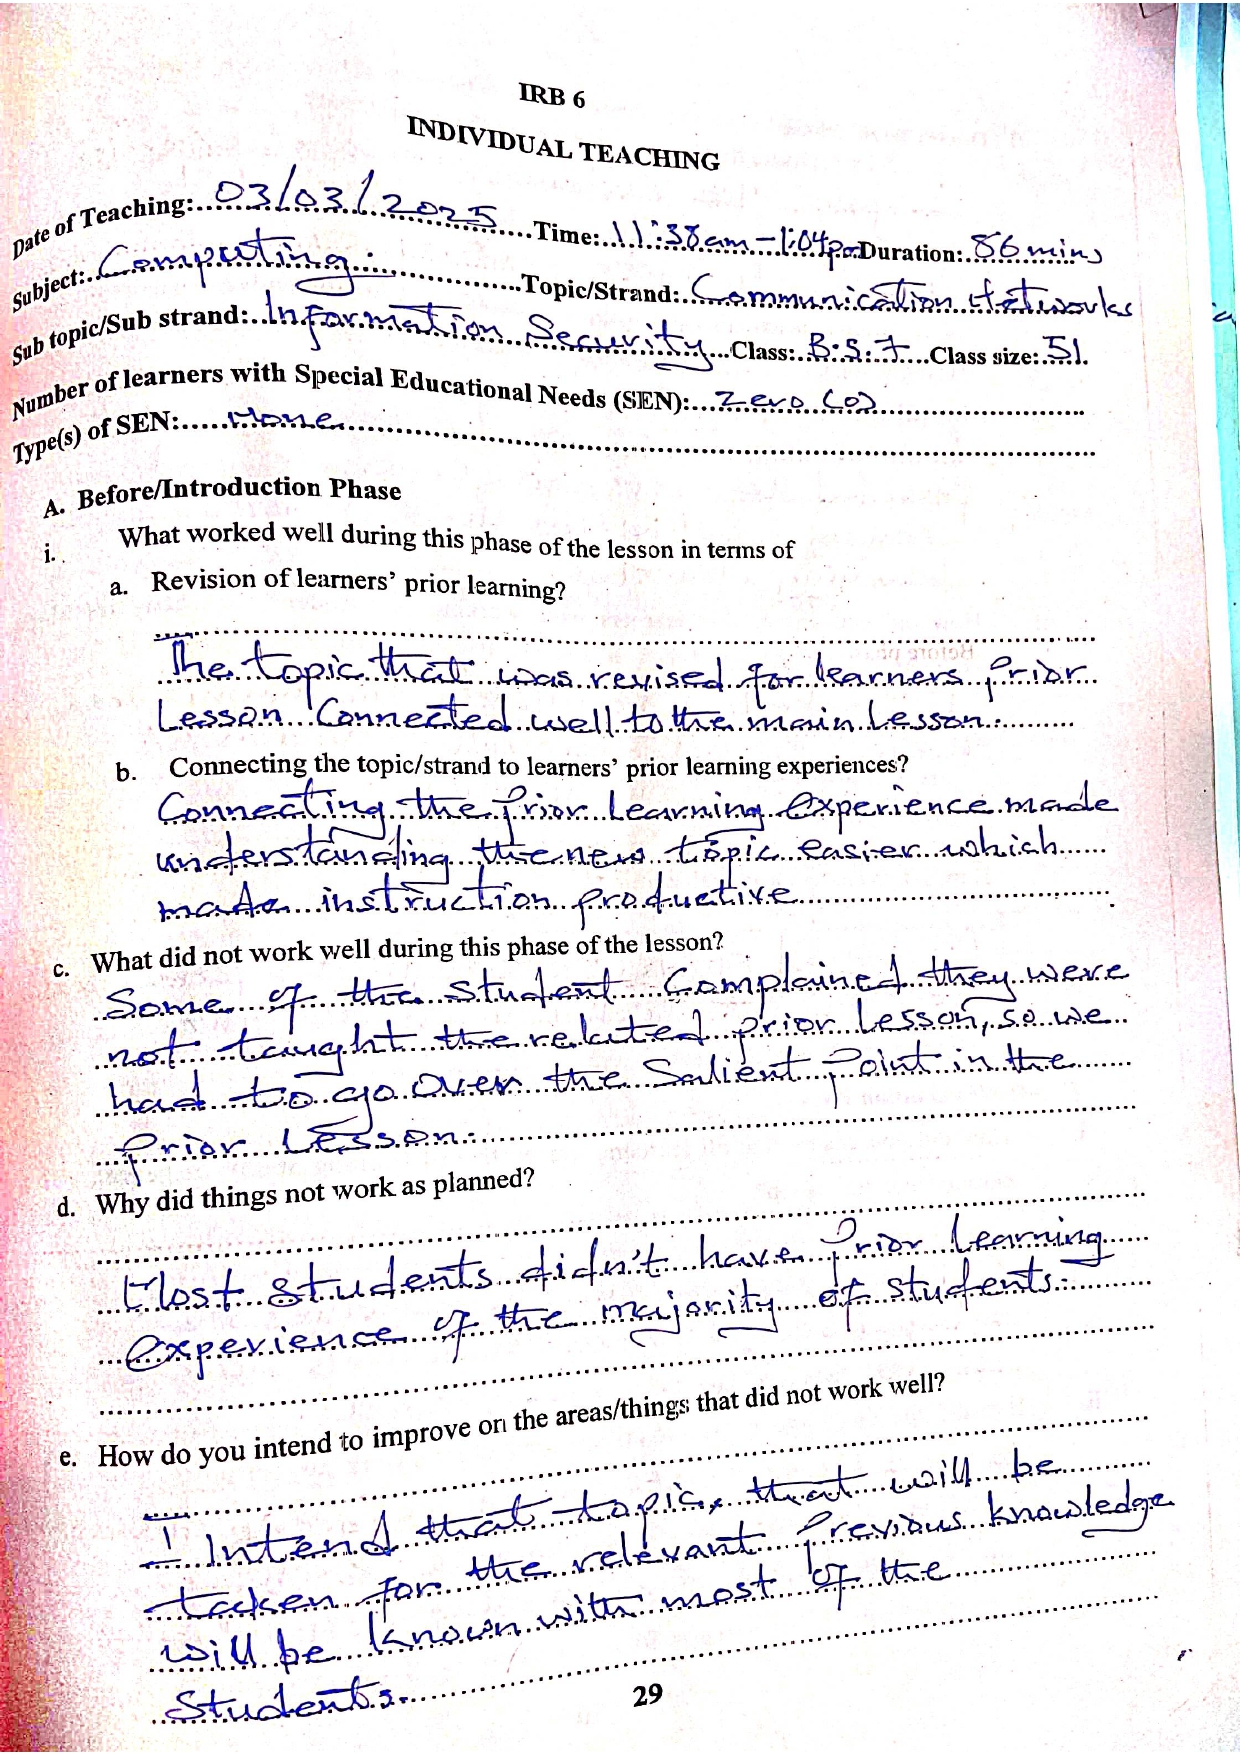 IRB 6
INDIVIDUAL TEACHING
Date of Teaching: 03/03/2025 Time: 11:38am - 1:04pm Duration: 86 mins
Subject: Computing Topic/Strand: Communication Networks
Sub topic/Sub strand: Information Security Class: B.S.7 Class size: 51.
Number of learners with Special Educational Needs (SEN): Zero (0)
Type(s) of SEN: None
A. Before/Introduction Phase
i. What worked well during this phase of the lesson in terms of
a. Revision of learners' prior learning?
The topic that was revised for learners prior
Lesson Connected well to the main Lesson.
b. Connecting the topic/strand to learners' prior learning experiences?
Connecting the prior Learning experience made
understanding the new topic easier which
made instruction productive
c. What did not work well during this phase of the lesson?
Some of the student Complained they were
not taught the related prior Lesson, so we
had to go over the Salient point in the
prior Lesson.
d. Why did things not work as planned?
Most students didn't have Prior Learning
experience of the majority of students.
e. How do you intend to improve on the areas/things that did not work well?
I Intend that topic, that will be
taken for the relevant Previous knowledge
will be known with most of the
Students.
29